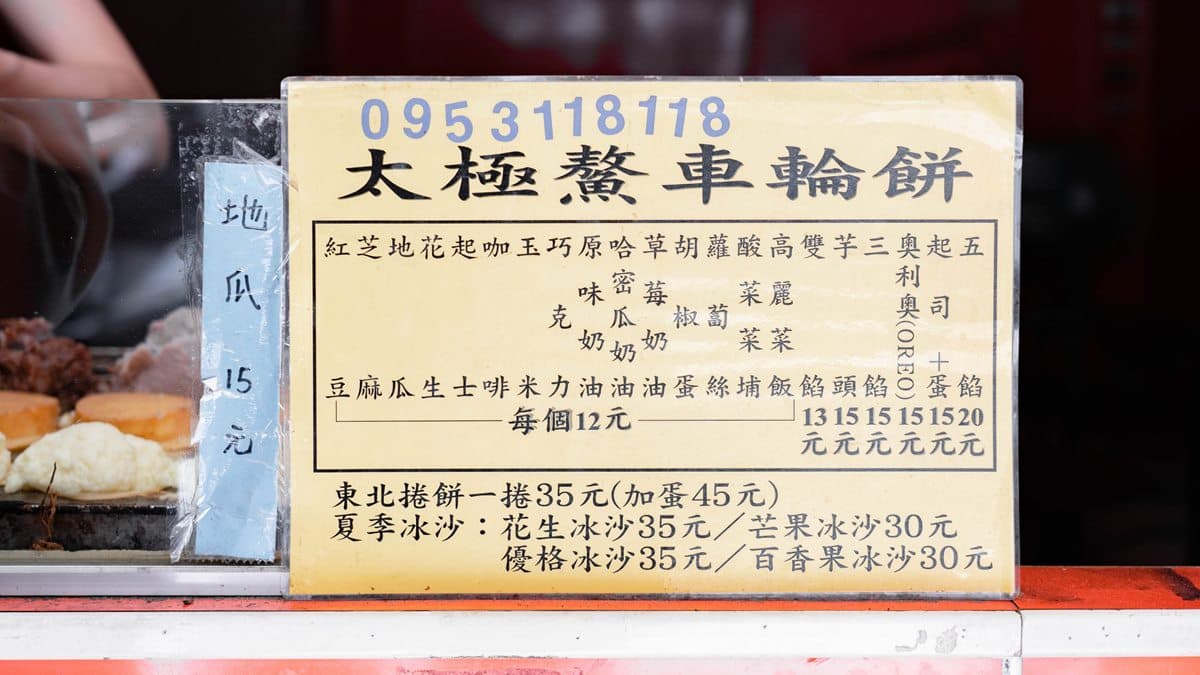 0953118118
太極鰲車輪餅
紅豆
芝麻
地瓜
花生
起士
咖啡
玉米
巧克力
原味奶油
哈密瓜奶油
草莓奶油
胡椒蛋
蘿蔔絲
酸菜菜埔
高麗菜飯
每個12元
雙餡13元
芋頭15元
三餡15元
奧利奧(OREO)15元
起司+蛋15元
五餡20元
東北捲餅一捲35元(加蛋45元)
夏季冰沙：花生冰沙35元／芒果冰沙30元
優格冰沙35元／百香果冰沙30元
地瓜15元